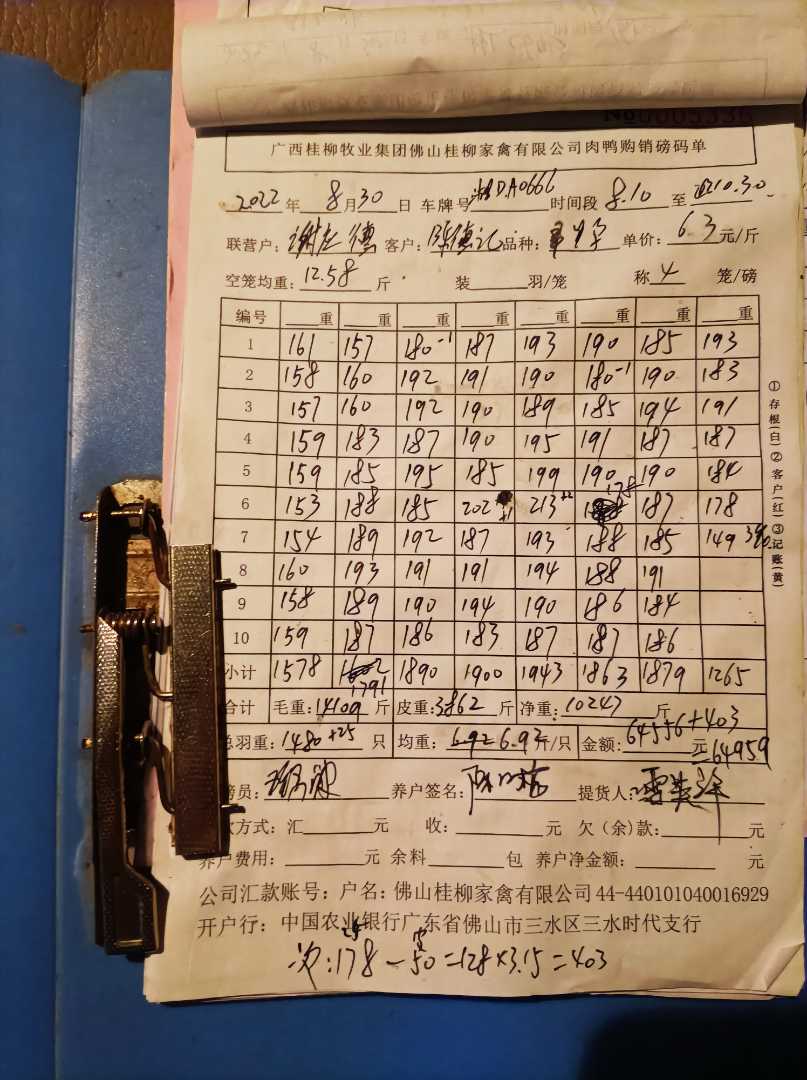 No 0005336
广西桂柳牧业集团佛山桂柳家禽有限公司肉鸭购销磅码单
2022年 8月30日 车牌号 湘DA0666 时间段 8.10 至 10.30
联营户: 谢 德 客户: 陈德记 品种: 单价: 6.3 元/斤
空笼均重: 12.58 斤 装 羽/笼 称 4 笼/磅
编号 重 重 重 重 重 重 重 重
1 161 157 180-1 187 193 190 185 193
2 158 160 192 191 190 180-1 190 183
3 157 160 192 190 189 185 194 191
4 159 183 187 190 195 191 187 187
5 159 185 195 185 199 190 190 184
6 153 188 185 202 +1 213+2 178 187 178
7 154 189 192 187 193 188 185 149
8 160 193 191 191 194 188 191
9 158 189 190 194 190 186 184
10 159 187 186 183 187 187 186
小计 1578 1791 1890 1900 1943 1863 1879 1265
合计 毛重: 14109 斤 皮重: 3862 斤 净重: 10247 斤
总羽重: 1480+25 只 均重: 6.92 6.92 斤/只 金额: 64556+403 元 =64959
磅员: 养户签名: 提货人:
款方式: 汇 元 收: 元 欠(余)款: 元
养户费用: 元 余料 包 养户净金额: 元
公司汇款账号: 户名: 佛山桂柳家禽有限公司 44-440101040016929
开户行: 中国农业银行广东省佛山市三水区三水时代支行
25
次: 178 - 50 = 128 × 3.15 = 403
①存根(白)②客户(红)③记账(黄)